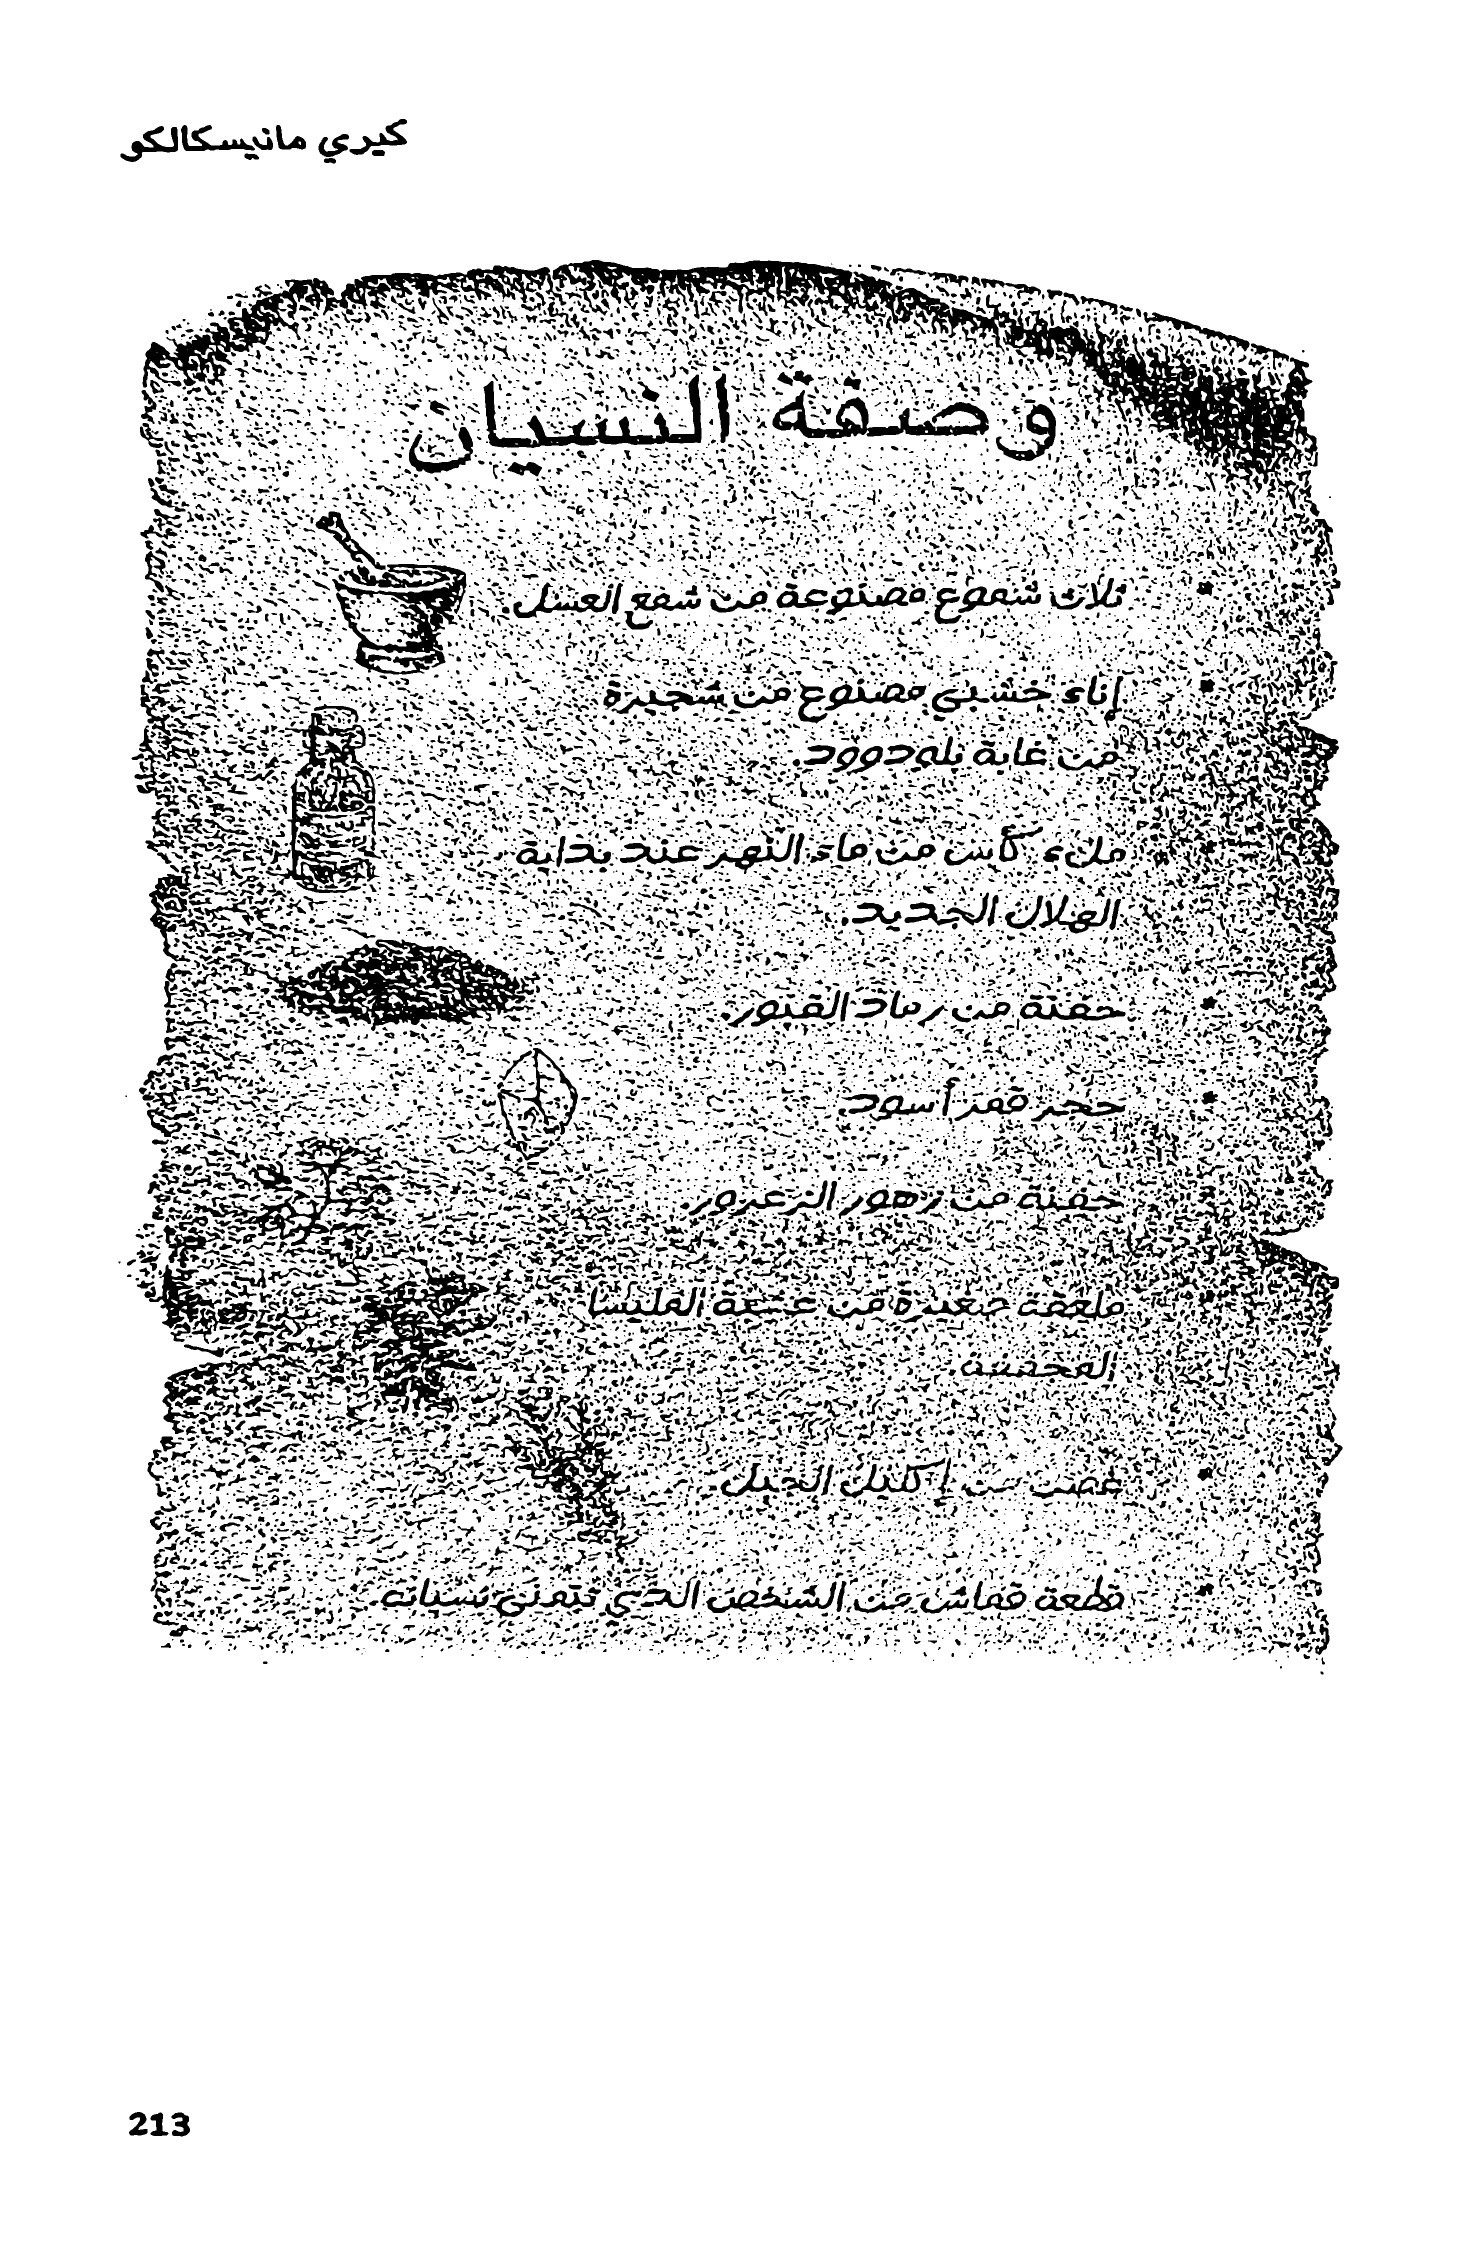 كيري مانيسكالكو
وصفة النسيان
* ثلاث شموع مصنوعة من شمع العسل.
* إناء خشبي مصنوع من شجيرة
من غابة بلودوود.
* ملء كأس من ماء النهر عند بداية
الهلال الجديد.
* حفنة من رماد القبور.
* حجر قمر أسود.
* حفنة من زهور الزعرور.
* ملعقة صغيرة من عشبة المليسا
المحمصة
* غصن من إكليل الجبل.
* قطعة قماش من الشخص الذي تتمنى نسيانه.
213